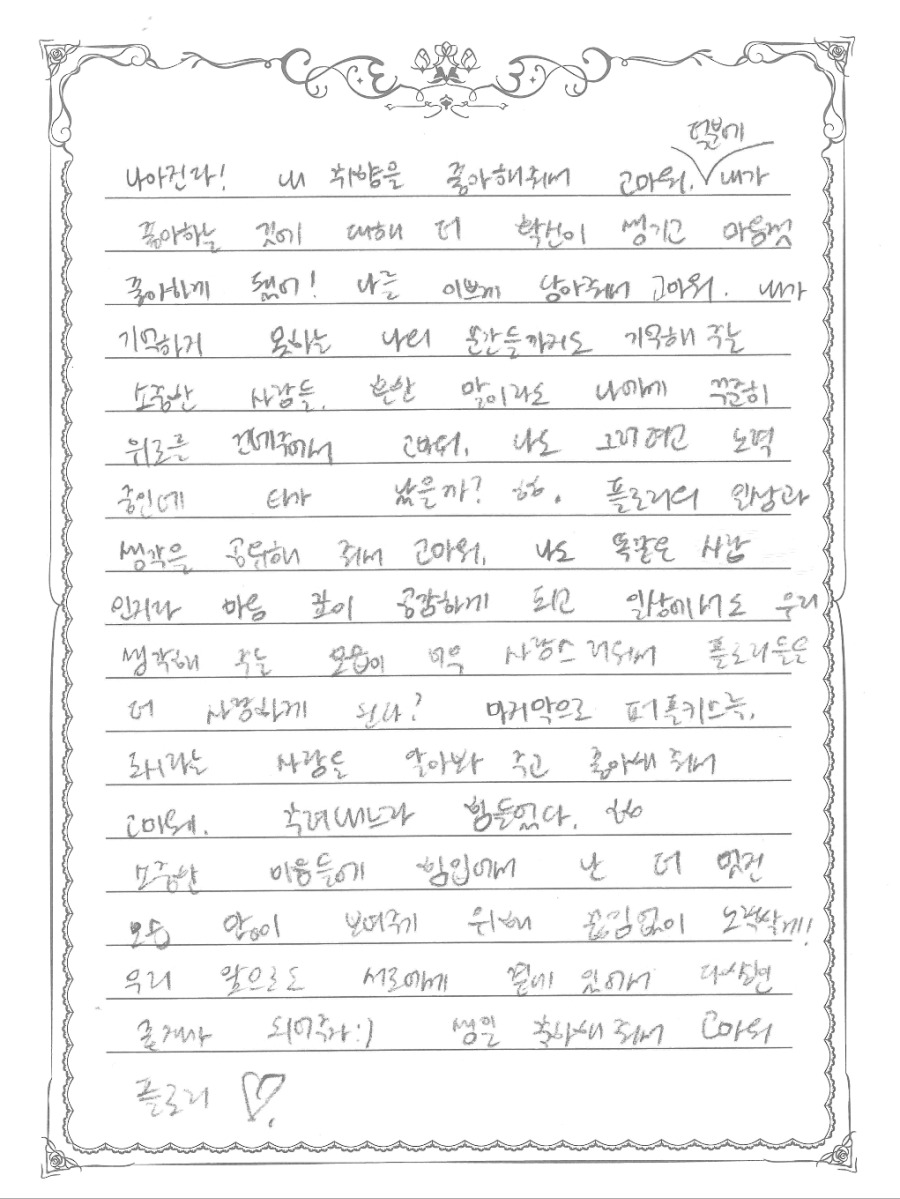 덕분에
나아진다! 내 취향을 좋아해줘서 고마워. 내가
좋아하는 것에 대해 더 확신이 생기고 마음껏
좋아하게 됐어! 나를 이쁘게 담아줘서 고마워. 내가
기억하지 못하는 나의 순간들까지도 기억해 주는
소중한 사람들. 흔한 말이라도 나에게 꾸준히
위로를 건네주어서 고마워. 나도 그러려고 노력
중인데 티가 났을까? ㅎㅎ. 플로리의 일상과
생각을 공유해 줘서 고마워. 나도 똑같은 사람
인지라 마음 깊이 공감하게 되고 일상에서도 우리
생각해 주는 모습이 너무 사랑스러워서 플로리들을
더 사랑하게 된다? 마지막으로 퍼플키스를,
라는 사람을 알아봐 주고 좋아해 줘서
고마워. 추려내느라 힘들었다. ㅎㅎ
소중한 마음들에 힘입어서 난 더 멋진
모습 많이 보여주기 위해 끊김없이 노력할게!
우리 앞으로도 서로에게 곁에 있어서 다
되어주자:) 생일 축하해 줘서 고마워
플로리 ♡.